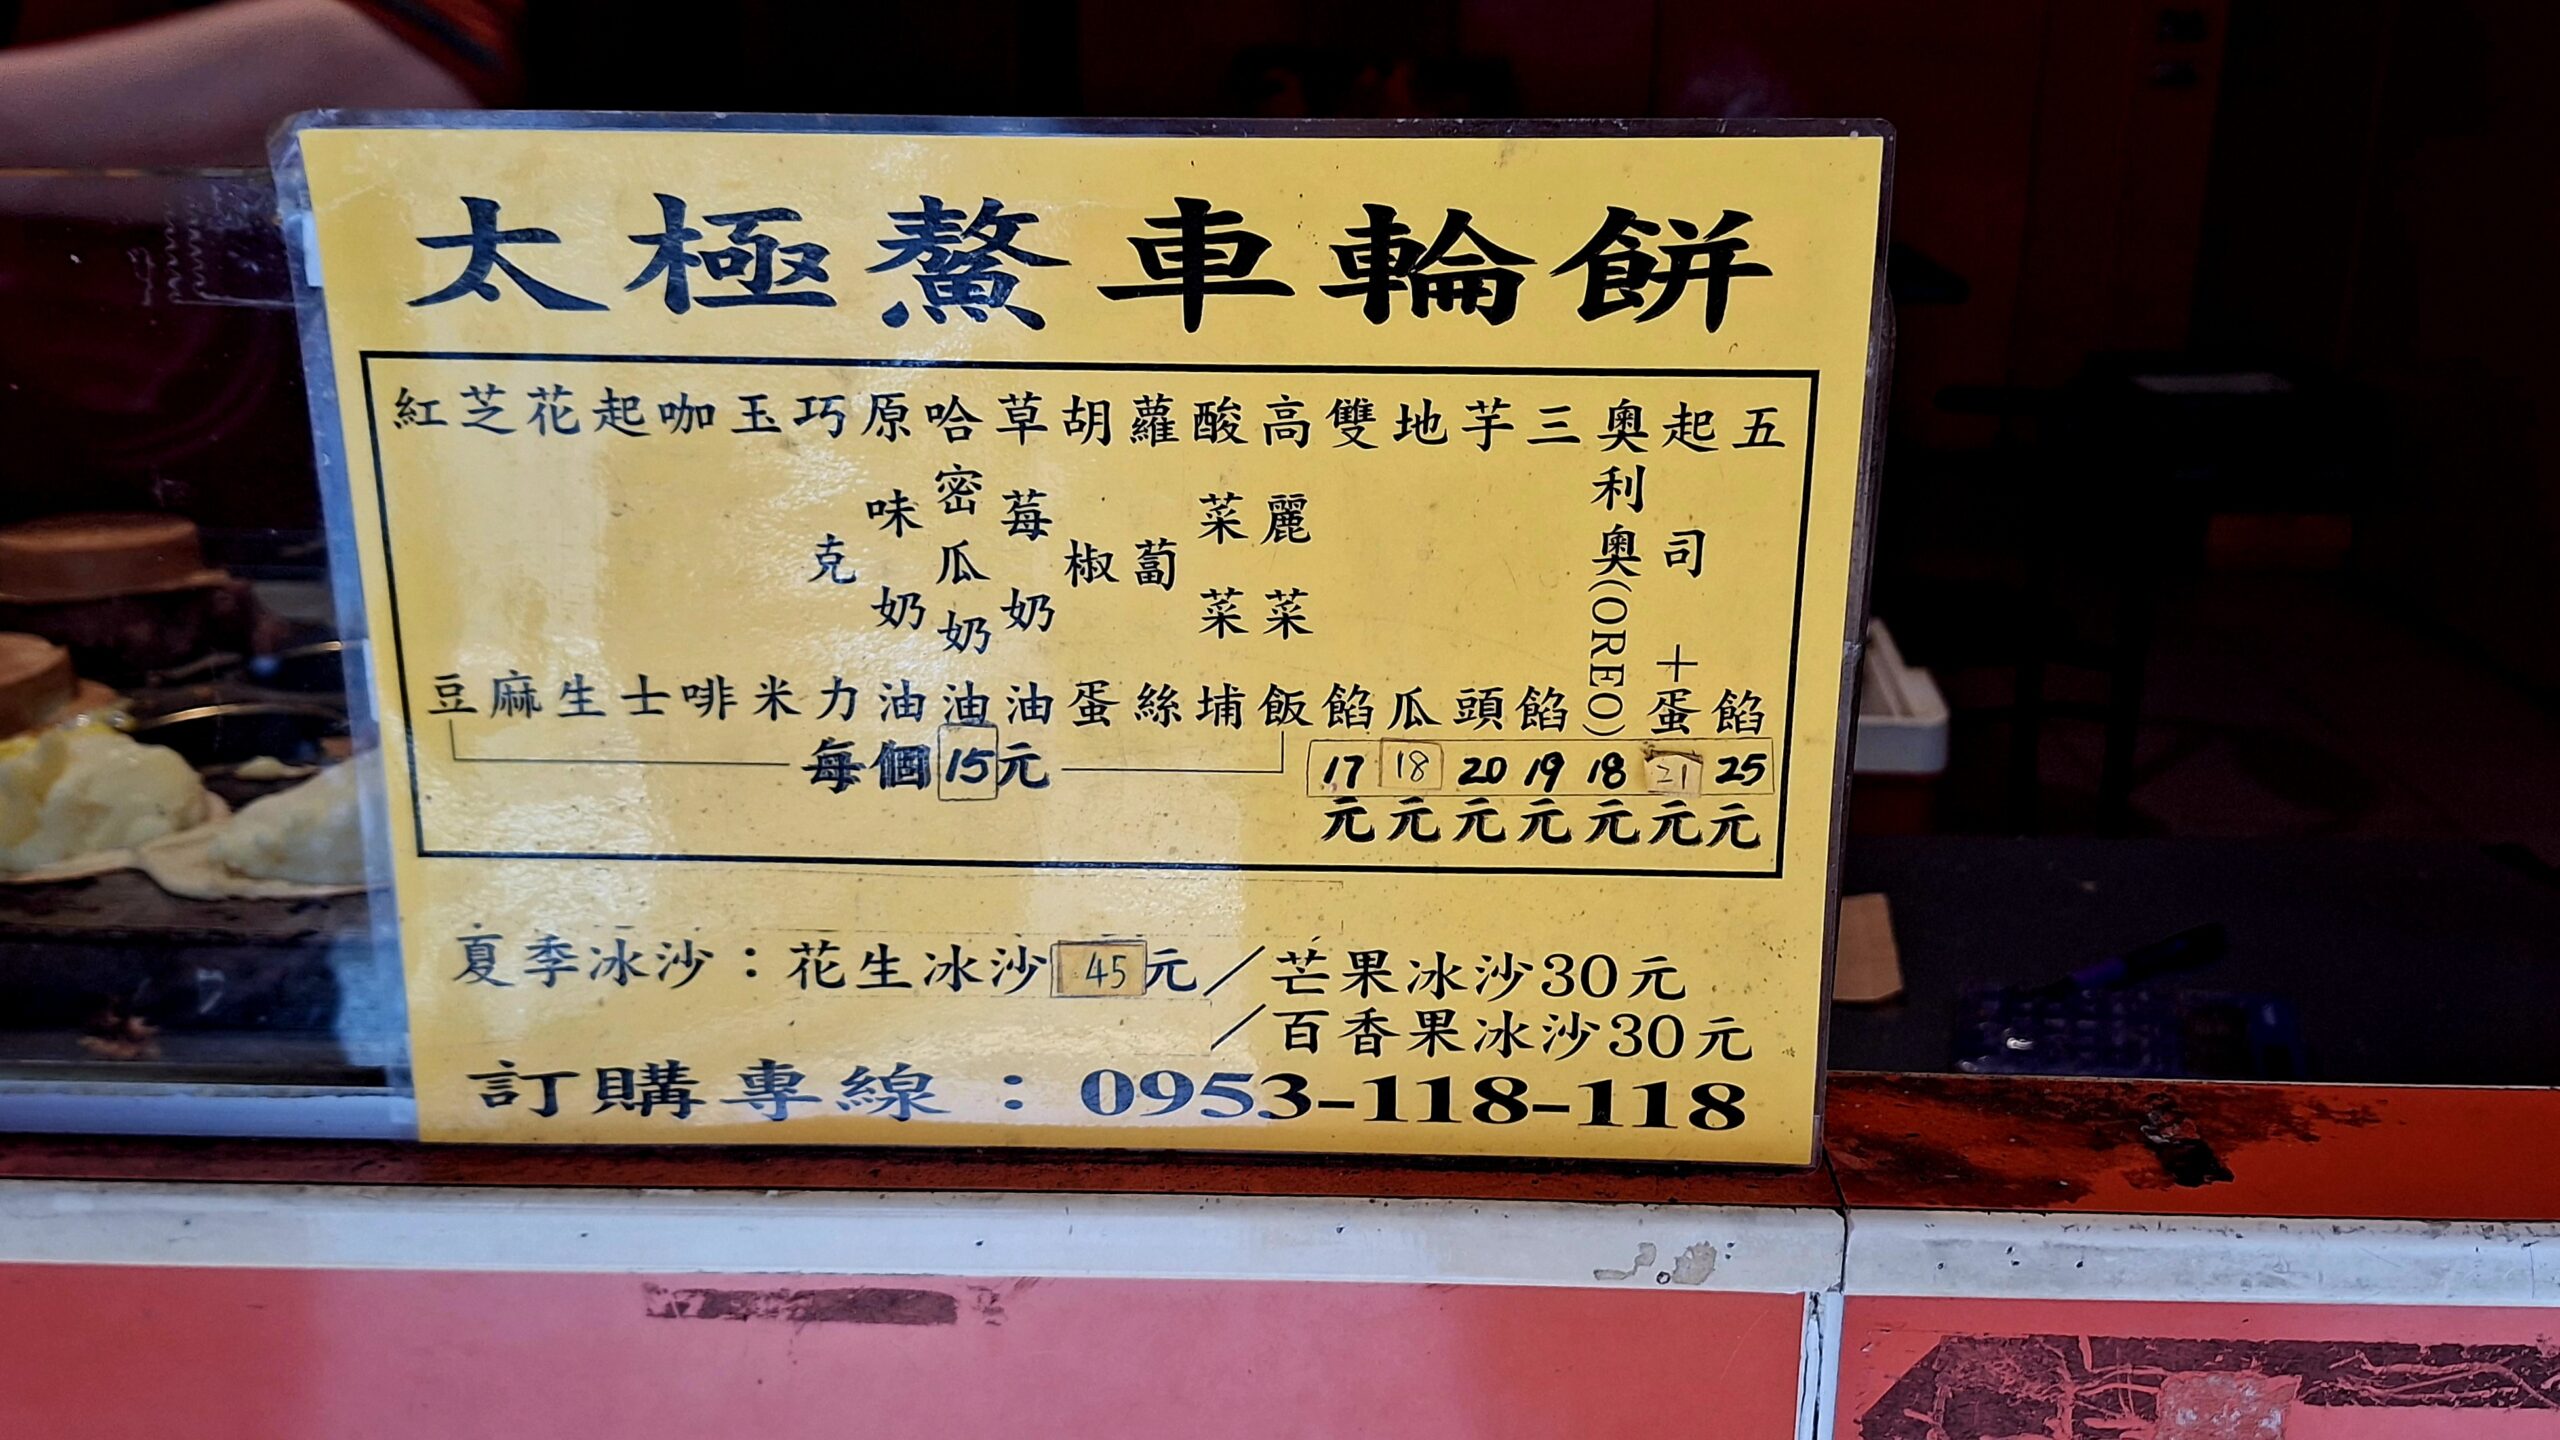 太極鰲車輪餅
紅豆
芝麻
花生
起士
咖啡
玉米
巧克力
原味奶油
哈密瓜奶油
草莓奶油
胡椒蛋
蘿蔔絲
酸菜菜埔
高麗菜飯
每個15元
雙餡17元
地瓜18元
芋頭20元
三餡19元
奧利奧(OREO)18元
起司+蛋21元
五餡25元
夏季冰沙：花生冰沙45元／芒果冰沙30元
／百香果冰沙30元
訂購專線：0953-118-118